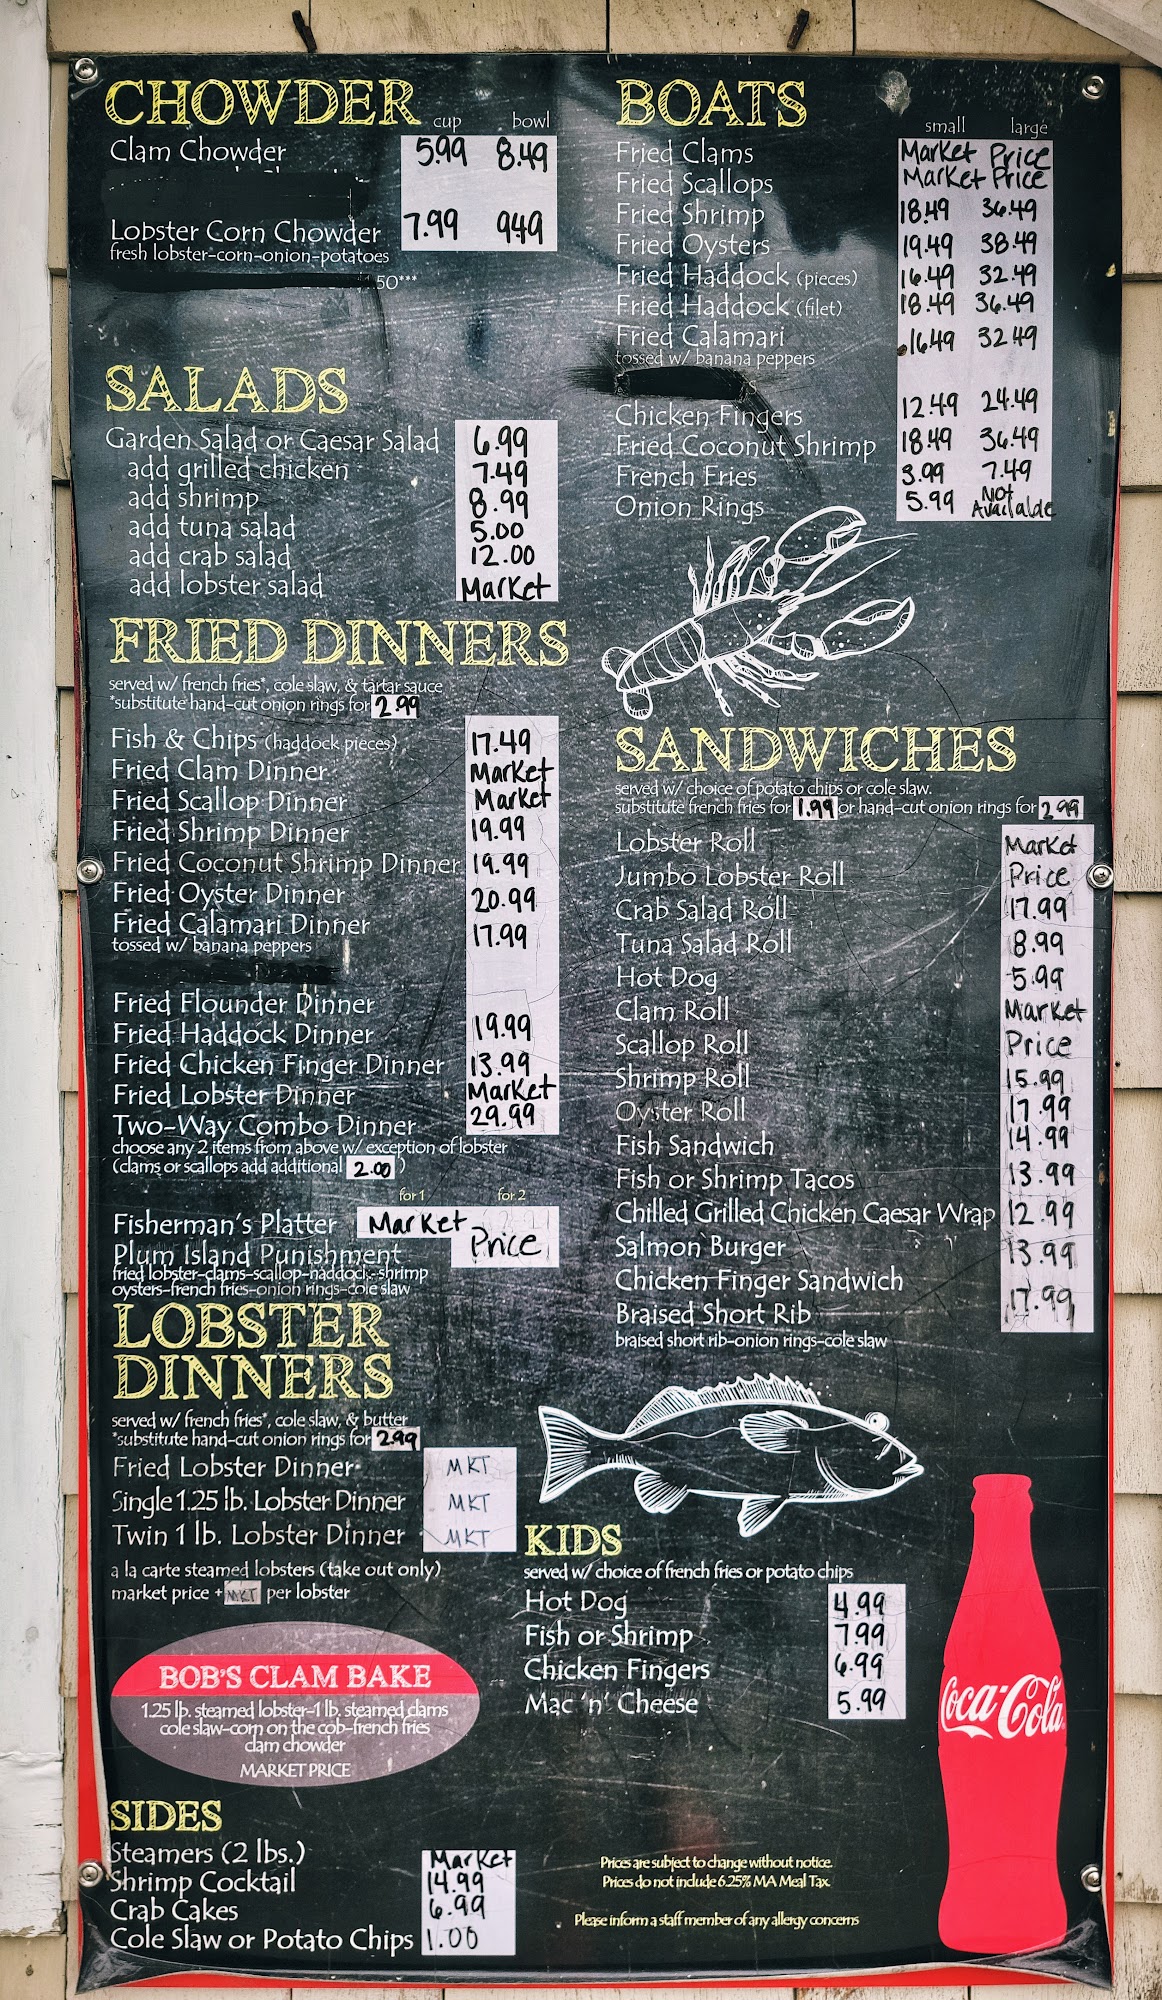 CHOWDER
cup bowl
Clam Chowder 5.99 8.49
Lobster Corn Chowder 7.99 9.49
fresh lobster-corn-onion-potatoes
50***
SALADS
Garden Salad or Caesar Salad 6.99
add grilled chicken 7.49
add shrimp 8.99
add tuna salad 5.00
add crab salad 12.00
add lobster salad Market
FRIED DINNERS
served w/ french fries*, cole slaw, & tartar sauce
*substitute hand-cut onion rings for 2.99
Fish & Chips (haddock pieces) 17.49
Fried Clam Dinner Market
Fried Scallop Dinner Market
Fried Shrimp Dinner 19.99
Fried Coconut Shrimp Dinner 19.99
Fried Oyster Dinner 20.99
Fried Calamari Dinner 17.99
tossed w/ banana peppers
Fried Flounder Dinner
Fried Haddock Dinner 19.99
Fried Chicken Finger Dinner 13.99
Fried Lobster Dinner Market
Two-Way Combo Dinner 29.99
choose any 2 items from above w/ exception of lobster
(clams or scallops add additional 2.00 )
for 1 for 2
Fisherman's Platter Market Price
Plum Island Punishment
fried lobster-clams-scallop-haddock-shrimp
oysters-french fries-onion rings-cole slaw
LOBSTER
DINNERS
served w/ french fries*, cole slaw, & butter
*substitute hand-cut onion rings for 2.99
Fried Lobster Dinner MKT
Single 1.25 lb. Lobster Dinner MKT
Twin 1 lb. Lobster Dinner MKT
a la carte steamed lobsters (take out only)
market price + MKT per lobster
BOB'S CLAM BAKE
1.25 lb. steamed lobster-1 lb. steamed clams
cole slaw-corn on the cob-french fries
clam chowder
MARKET PRICE
SIDES
Steamers (2 lbs.) Market
Shrimp Cocktail 14.99
Crab Cakes 6.99
Cole Slaw or Potato Chips 1.00
BOATS
small large
Fried Clams Market Price
Fried Scallops Market Price
Fried Shrimp 18.49 36.49
Fried Oysters 19.49 38.49
Fried Haddock (pieces) 16.49 32.49
Fried Haddock (filet) 18.49 36.49
Fried Calamari 16.49 32.49
tossed w/ banana peppers
Chicken Fingers 12.49 24.49
Fried Coconut Shrimp 18.49 36.49
French Fries 3.99 7.49
Onion Rings 5.99 Not Available
SANDWICHES
served w/ choice of potato chips or cole slaw.
substitute french fries for 1.99 or hand-cut onion rings for 2.99
Lobster Roll Market
Jumbo Lobster Roll Price
Crab Salad Roll 17.99
Tuna Salad Roll 8.99
Hot Dog 5.99
Clam Roll Market
Scallop Roll Price
Shrimp Roll 15.99
Oyster Roll 17.99
Fish Sandwich 14.99
Fish or Shrimp Tacos 13.99
Chilled Grilled Chicken Caesar Wrap 12.99
Salmon Burger 13.99
Chicken Finger Sandwich
Braised Short Rib 17.99
braised short rib-onion rings-cole slaw
KIDS
served w/ choice of french fries or potato chips
Hot Dog 4.99
Fish or Shrimp 7.99
Chicken Fingers 6.99
Mac 'n' Cheese 5.99
Coca-Cola
Prices are subject to change without notice.
Prices do not include 6.25% MA Meal Tax.
Please inform a staff member of any allergy concerns